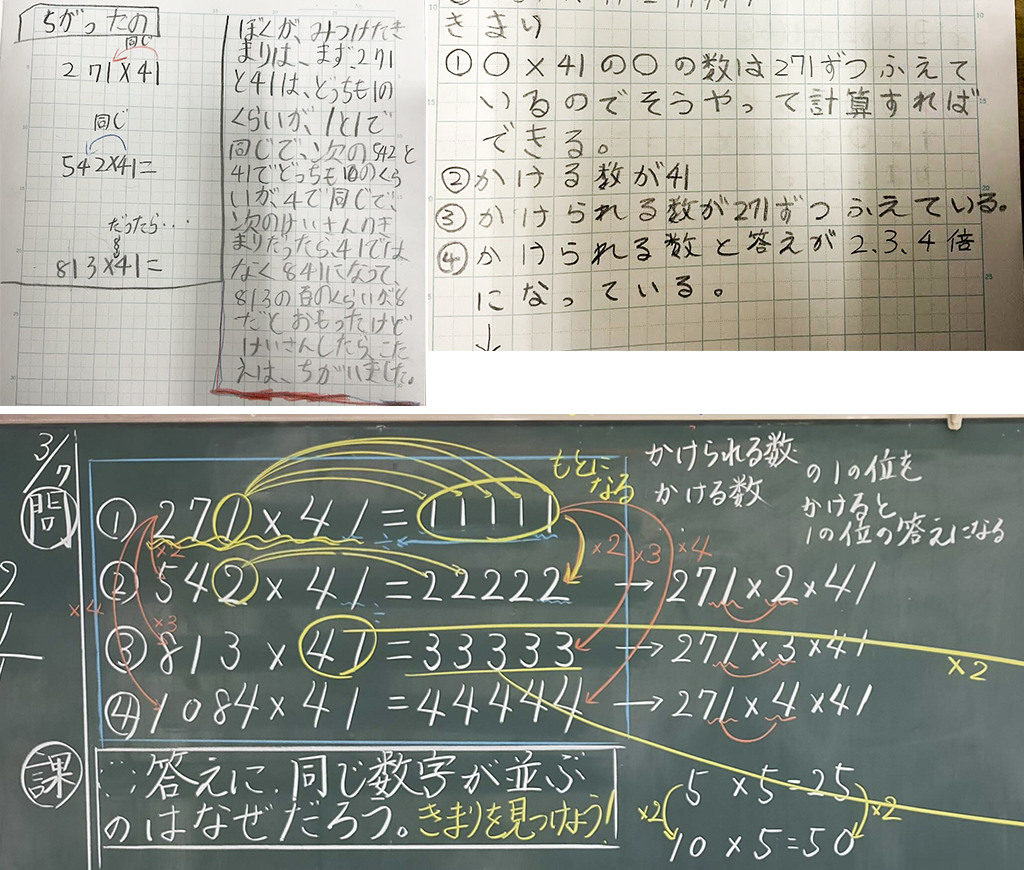 ちがったの
同じ
271×41
同じ
542×41=
だったら・・
813×41=
ぼくが、みつけたき
まりは、まず271
と41は、どっちも1の
くらいが、1と1で
同じで、次の542と
41でどっちも10のくら
いが、4で同じで、
次のけいさんのき
まりだったら、41では
なく841になって、
813の百のくらいが8
だとおもったけど
けいさんしたら、こた
えは、ちがいました。
きまり
①○×41の○の数は271ずつふえて
いるのでそうやって計算すれば
できる。
②かける数が41
③かけられる数が271ずつふえている。
④かけられる数と答えが2.3.4倍
になっている。
↓
3/7
問
①271×41=11111
もとになる
②542×41=22222→271×2×41
③813×41=33333→271×3×41
④1084×41=44444→271×4×41
×2
×3
×4
×2
×3
×4
かけられる数
かける数
の1の位を
かけると
1の位の答えになる
×2
課
∴答えに、同じ数字が並ぶ
のはなぜだろう。きまりを見つけよう!
5×5=25
×2
×2
10×5=50